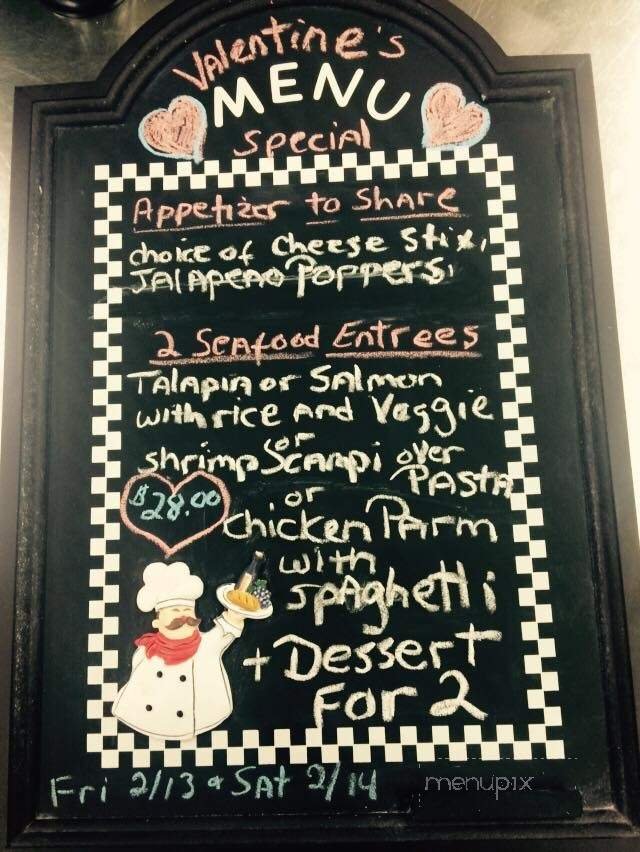 Valentine's
MENU
special
Appetizer to Share
choice of Cheese Stix,
JALAPENO Poppers
2 Seafood Entrees
TALAPIA or SALMON
with rice And Veggie
or
shrimp Scampi over
PASTA
$28.00
or
chicken Parm
with
spaghetti
+ Dessert
For 2
Fri 2/13 & SAT 2/14
menupix